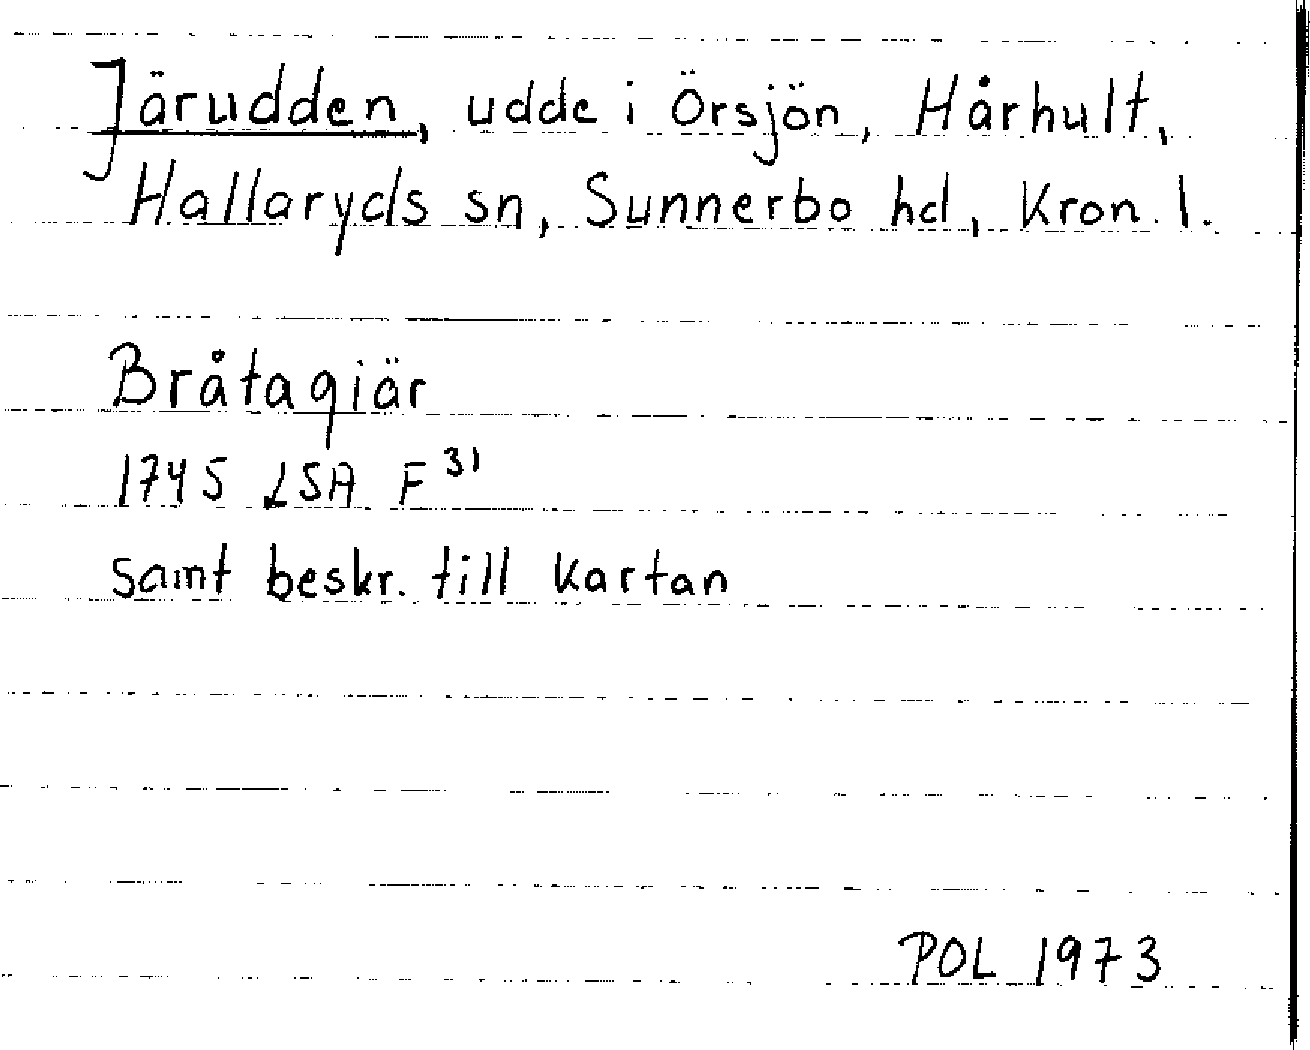 Järudden, udde i Örsjön, Hårhult,
Hallaryds sn, Sunnerbo hd, Kron. l.
Bråtagiär
1745 LSA F 31
samt beskr. till kartan
POL 1973